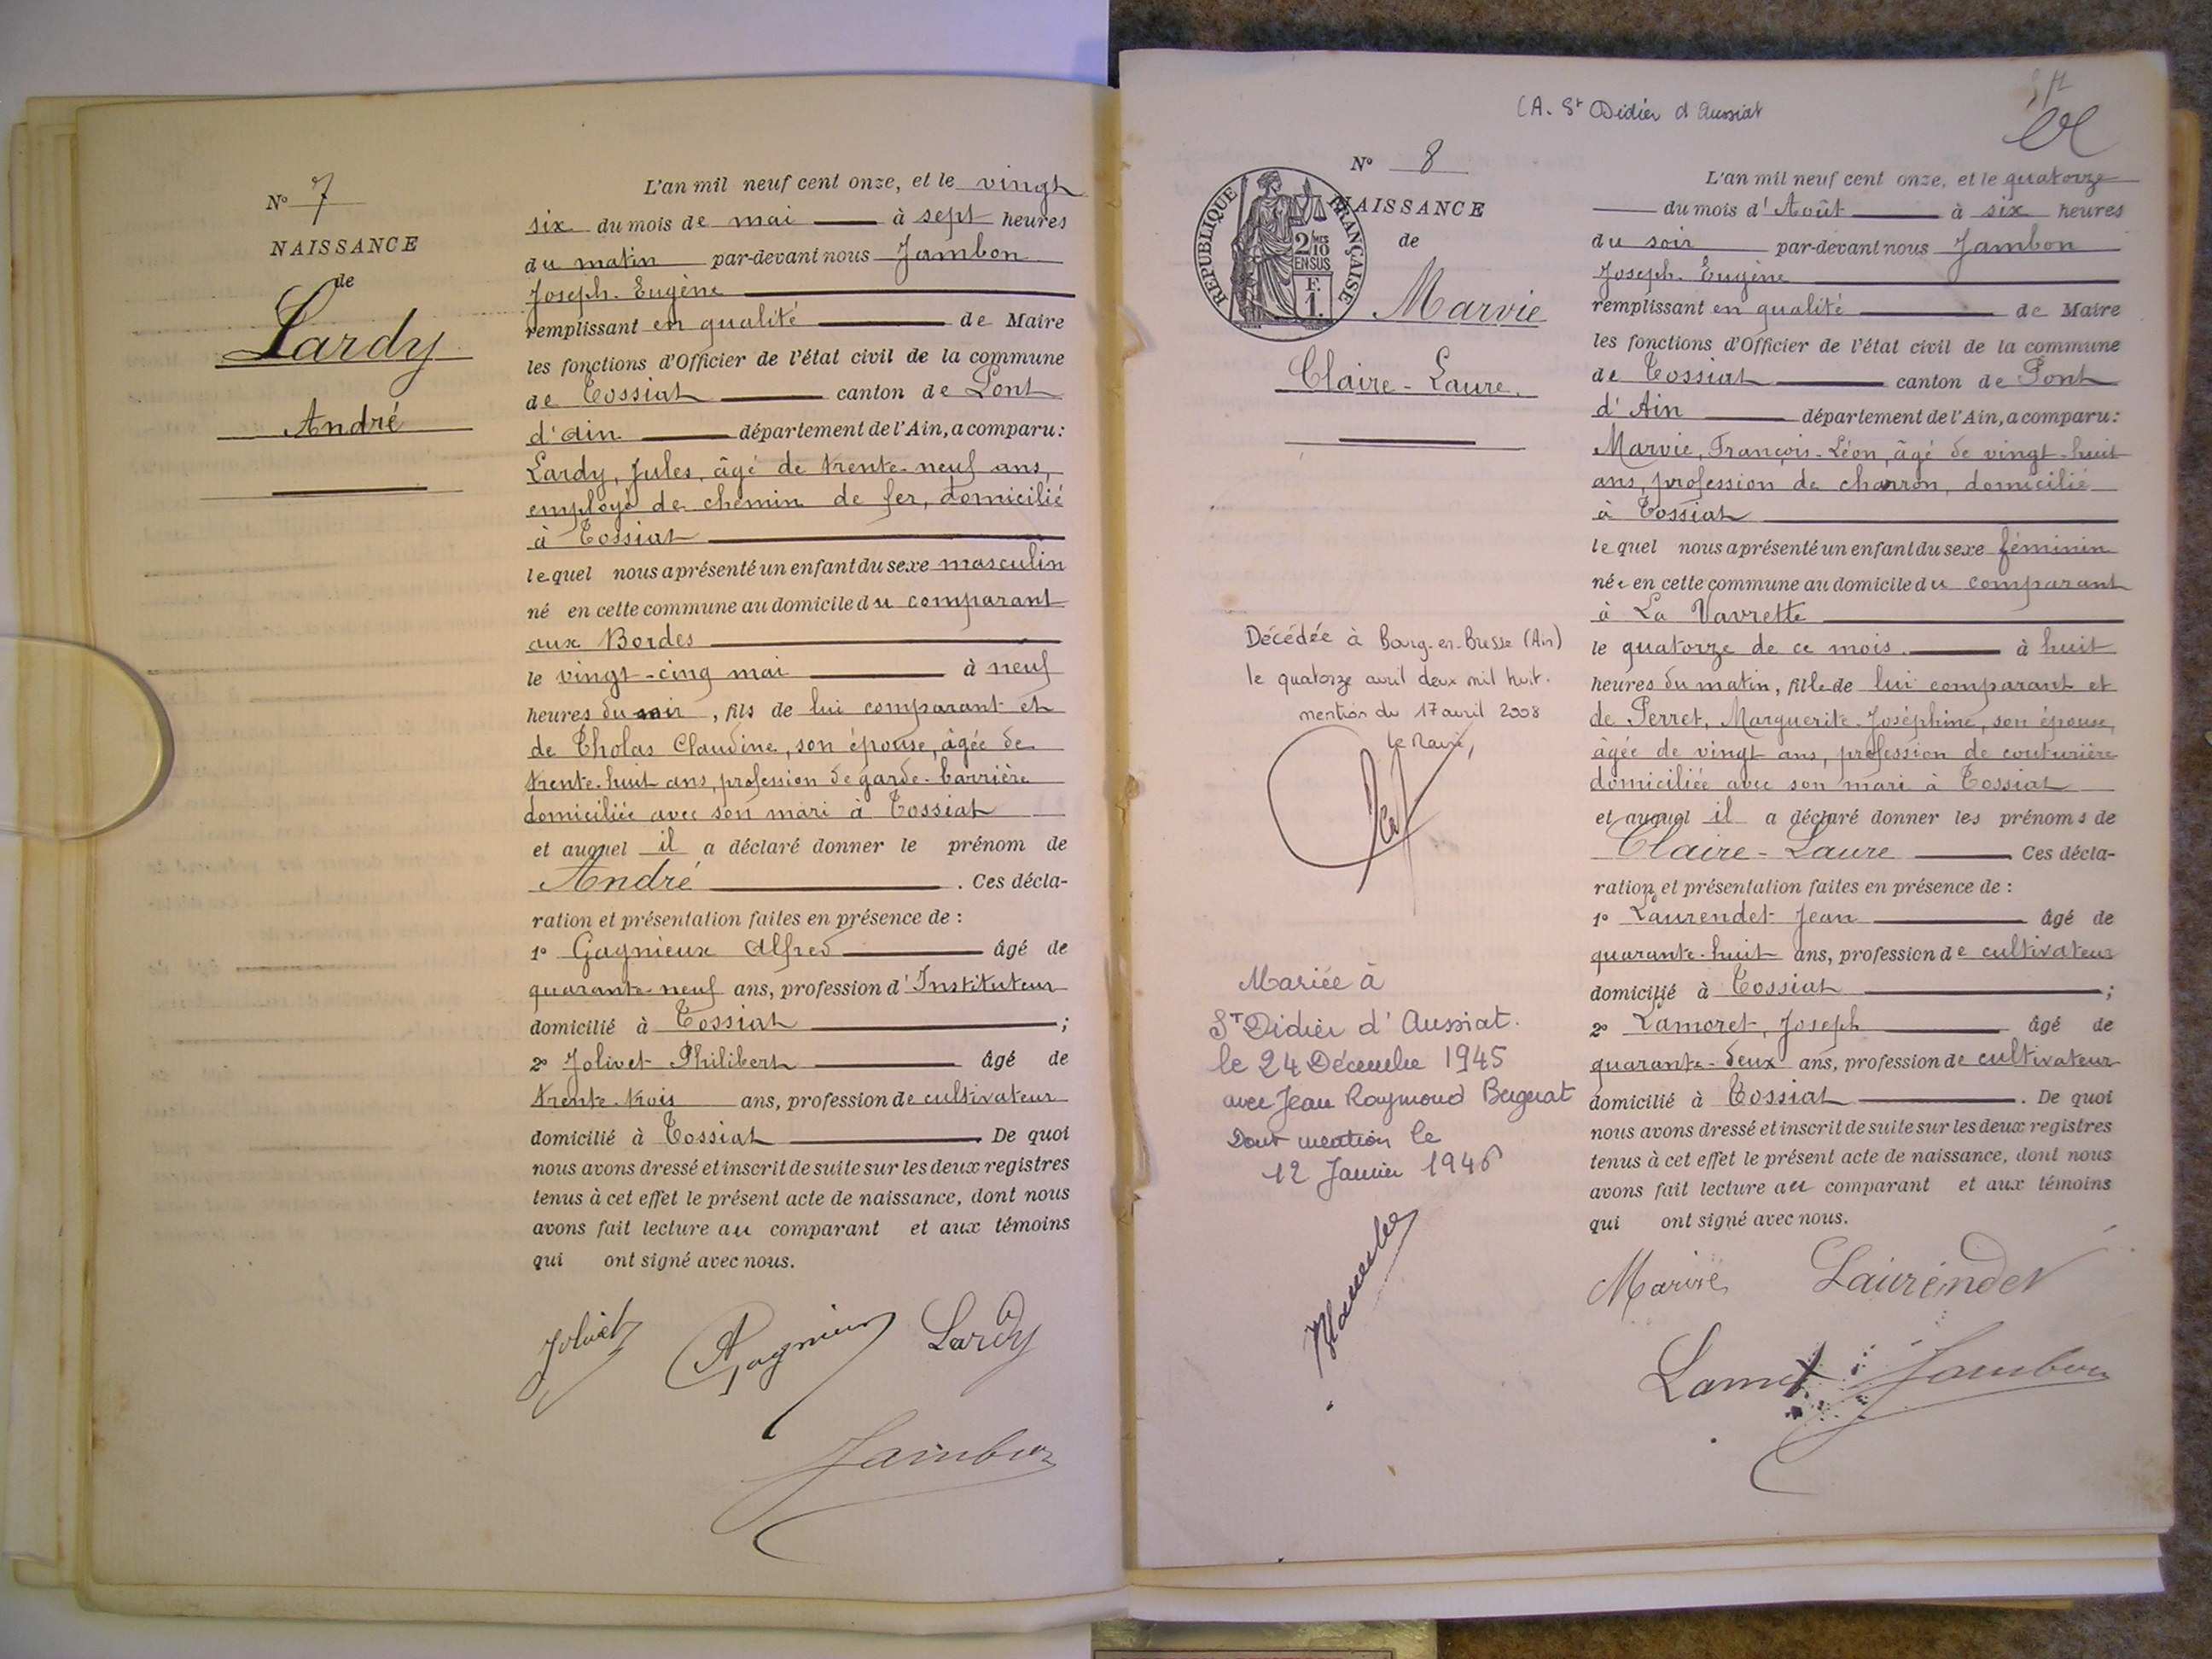 N° 7
NAISSANCE
de
Lardy
André
L'an mil neuf cent onze, et le vingt
six du mois de mai à sept heures
du matin par-devant nous Jambon
Joseph-Eugène
remplissant en qualité de Maire
les fonctions d'Officier de l'état civil de la commune
de Tossiat canton de Pont
d'ain département de l'Ain, a comparu :
Lardy, Jules, âgé de trente-neuf ans,
employé de chemin de fer, domicilié
à Tossiat
lequel nous a présenté un enfant du sexe masculin
né en cette commune au domicile du comparant
aux Bordes
le vingt-cinq mai à neuf
heures du soir, fils de lui comparant et
de Tholas Claudine, son épouse, âgée de
trente-huit ans, profession de garde-barrière
domiciliée avec son mari à Tossiat
et auquel il a déclaré donner le prénom de
André. Ces décla-
ration et présentation faites en présence de :
1° Gagnieux Alfred âgé de
quarante-neuf ans, profession d'Instituteur
domicilié à Tossiat ;
2° Jolivet Philibert âgé de
trente-trois ans, profession de cultivateur
domicilié à Tossiat. De quoi
nous avons dressé et inscrit de suite sur les deux registres
tenus à cet effet le présent acte de naissance, dont nous
avons fait lecture au comparant et aux témoins
qui ont signé avec nous.
Jolivet Gagnieux Lardy
Jambon
(A. St Didier d'Aussiat
N° 8
NAISSANCE
de
RÉPUBLIQUE FRANÇAISE
2/10 MES
EN SUS
F.
1.
Marvie
Claire-Laure.
Décédée à Bourg-en-Bresse (Ain)
le quatorze avril deux mil huit.
mention du 17 avril 2008
Le Maire,
Mariée à
St Didier d'Aussiat.
le 24 Décembre 1945
avec Jean Raymond Buguat
Dont mention le
12 Janvier 1946
L'an mil neuf cent onze, et le quatorze
du mois d'Août à six heures
du soir par-devant nous Jambon
Joseph-Eugène
remplissant en qualité de Maire
les fonctions d'Officier de l'état civil de la commune
de Tossiat canton de Pont
d'Ain département de l'Ain, a comparu :
Marvie, François-Léon, âgé de vingt-huit
ans, profession de charron, domicilié
à Tossiat
lequel nous a présenté un enfant du sexe féminin
née en cette commune au domicile du comparant
à La Vavrette
le quatorze de ce mois. à huit
heures du matin, fille de lui comparant et
de Perret, Marguerite-Joséphine, son épouse,
âgée de vingt ans, profession de couturière
domiciliée avec son mari à Tossiat
et auquel il a déclaré donner les prénoms de
Claire-Laure Ces décla-
ration et présentation faites en présence de :
1° Laurendet Jean âgé de
quarante-huit ans, profession de cultivateur
domicilié à Tossiat ;
2° Lamoret, Joseph âgé de
quarante-deux ans, profession de cultivateur
domicilié à Tossiat. De quoi
nous avons dressé et inscrit de suite sur les deux registres
tenus à cet effet le présent acte de naissance, dont nous
avons fait lecture au comparant et aux témoins
qui ont signé avec nous.
Marvie Laurendet
Jambon